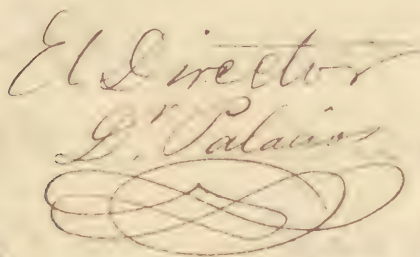 El Director
G.r Palacio